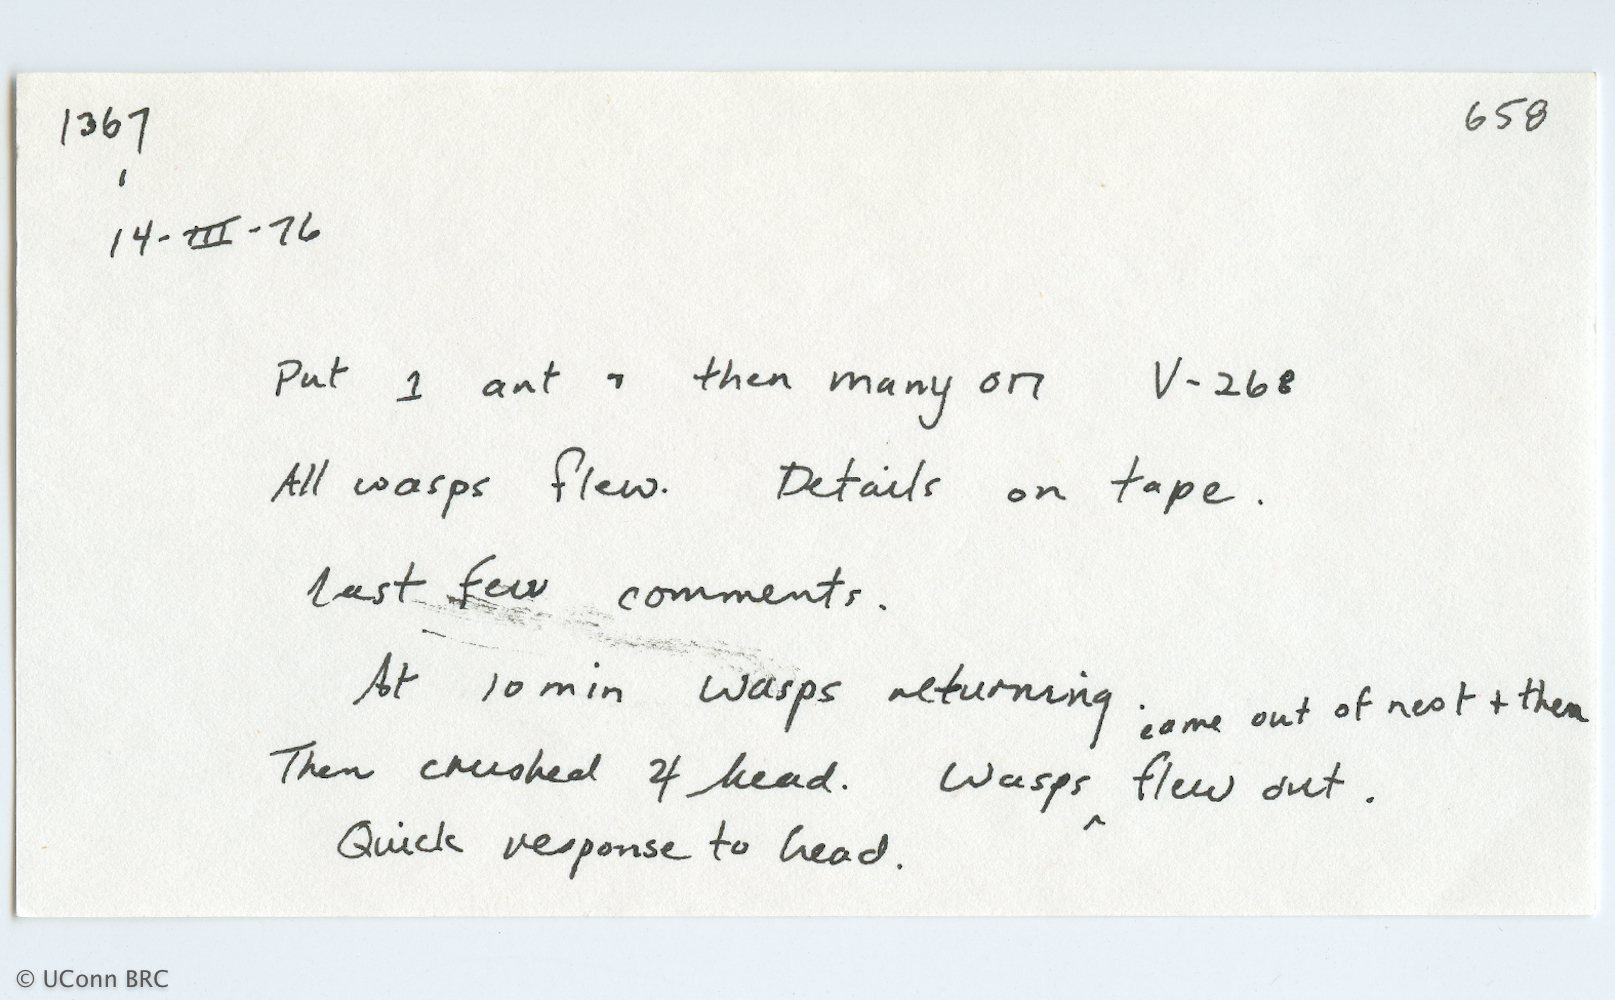 1367
658
14-III-76
Put 1 ant + then many on V-268
All wasps flew. Details on tape.
Last few comments.
At 10 min wasps returning.
came out of nest + then
Then crushed 4 head. Wasps ^ flew out.
Quick response to head.
© UConn BRC